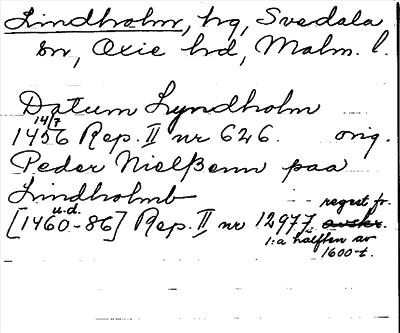 Lindholm, hg, Svedala
sn, Oxie hd, Malm. l.
Datum Lyndholm
14/7
1456 Rep. II nr 626. orig.
Peder Nielßenn paa
Lindholmb
u.d. regest fr.
[1460-86] Rep. II nr 12977. avskr.
1:a hälften av
1600-t.